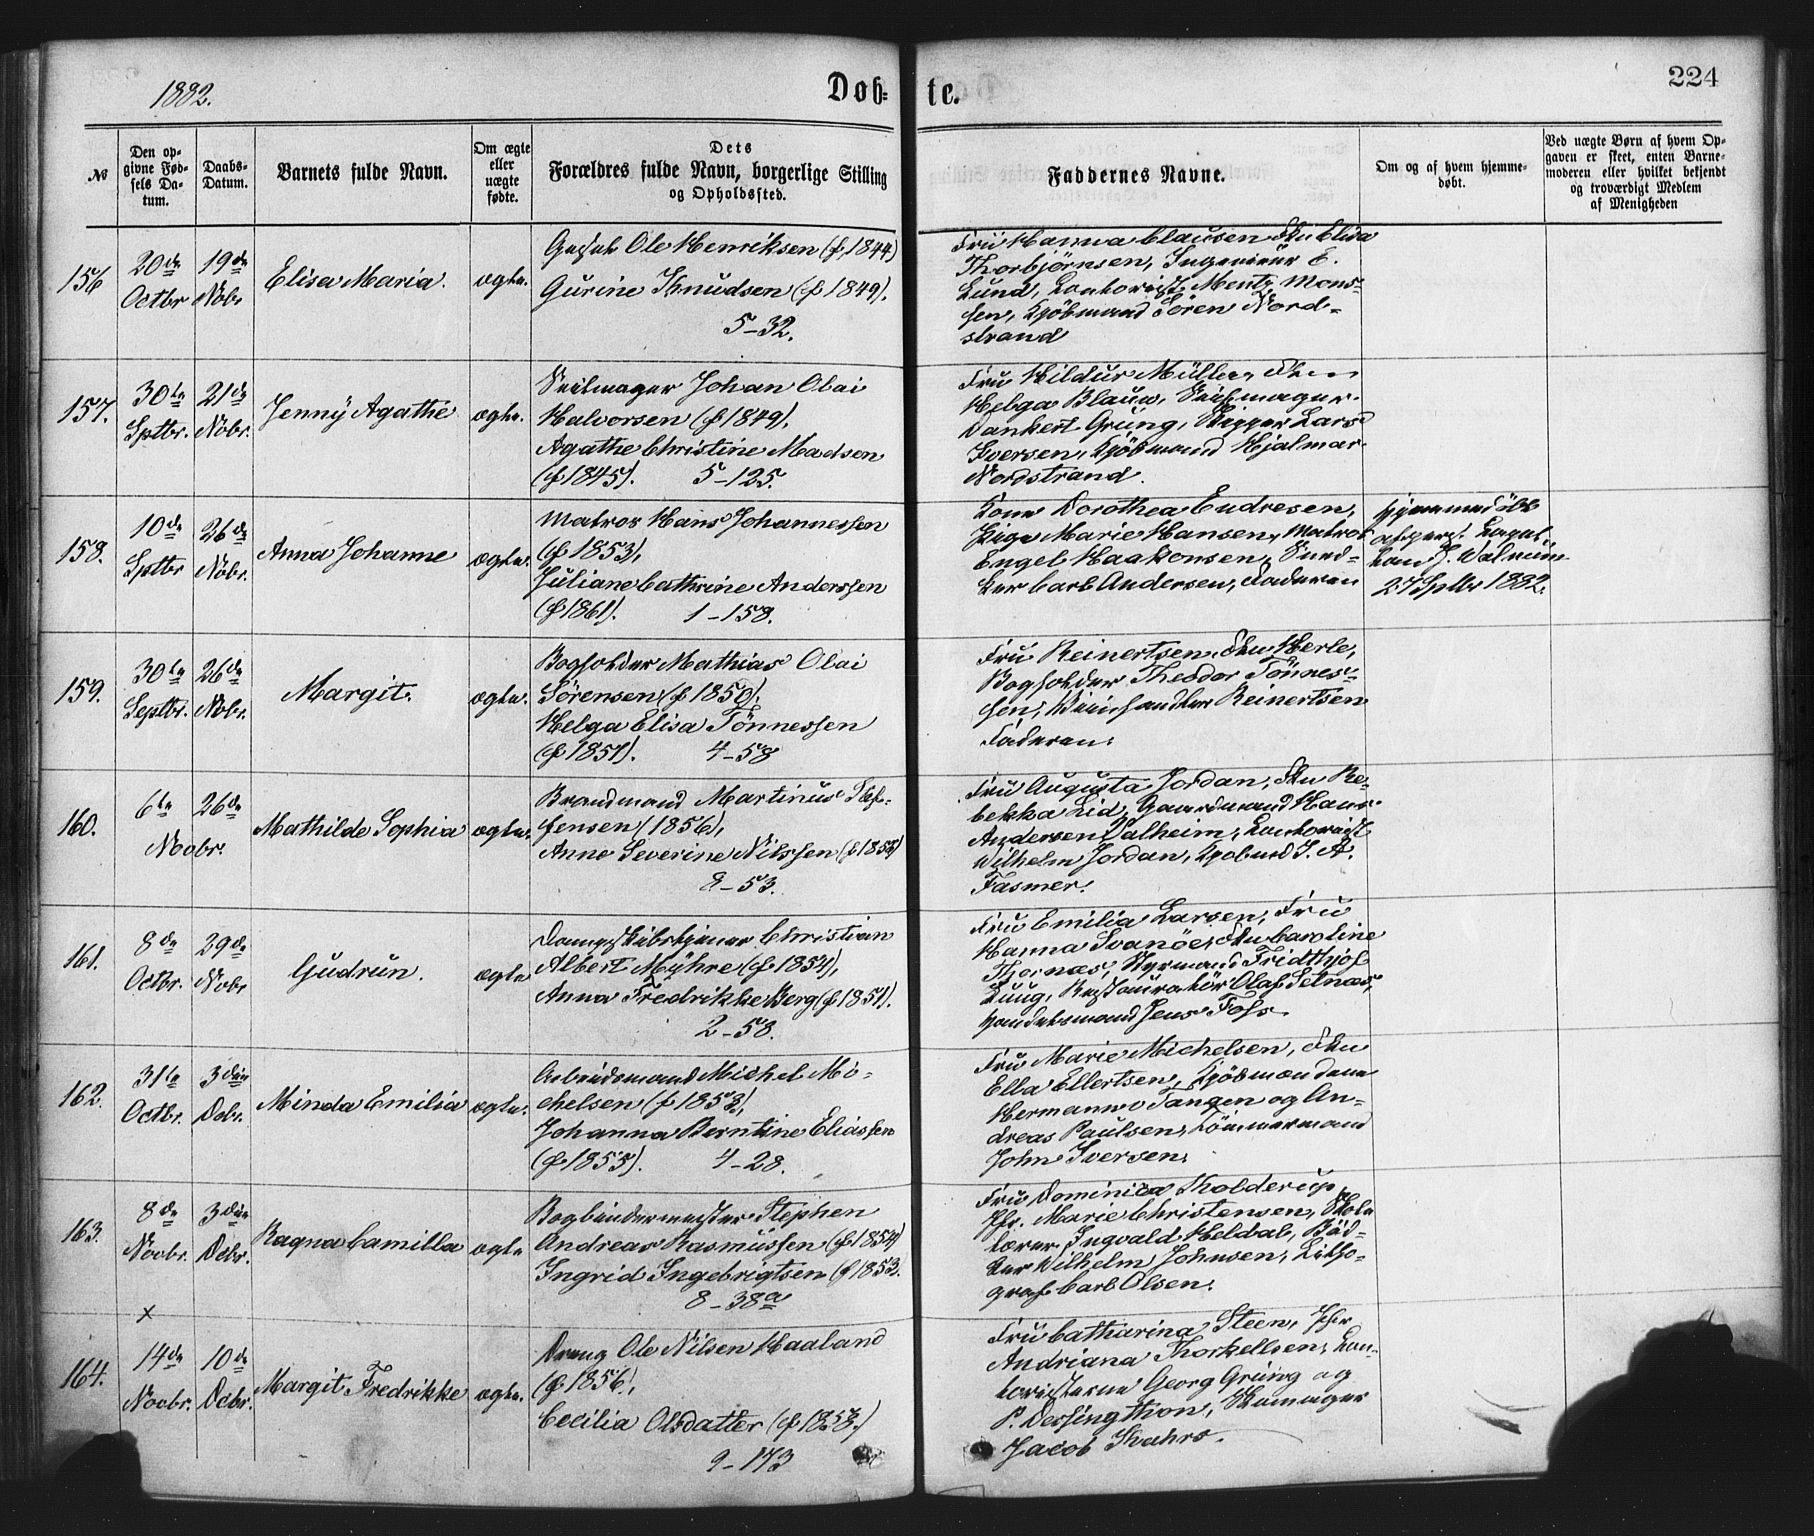 1882.
Døb-
te.
224
№
Den op-
givne Fød-
sels Da-
tum.
Daabs-
Datum.
Barnets fulde Navn.
Om ægte
eller
uægte
fødte.
Dets
Forældres fulde Navn, borgerlige Stilling
og Opholdssted.
Faddernes Navne.
Om og af hvem hjemme-
døbt.
Ved uægte Børn af hvem Op-
gaven er skeet, enten Barne-
moderen eller hvilket bekjendt
og troværdigt Medlem
af Menigheden
156
20de Octbr
19de Nobr
Elisa Maria.
ægte.
Ole Henriksen (f. 1844)
Gurine Knudsen (f 1849).
5-32.
Fru Hanna Clausen Fru Elisa
Thorbjørnsen, Ingeniør E.
Lund, Kontorist Mentz Mons-
sen, Kjøbmand Søren Nord-
strand
157.
30te Sptbr.
21de Nobr.
Jenny Agathe
ægte.
Seilmager Johan Olai
Halvorsen (f 1849),
Agathe Christine Madsen
(f 1845). 5-125.
Fru Hildur Müller, Fru
Helga Blauw, Seilmager
Dankert Grüng, Skipper Lars
Iversen, Kjøbmand Hjalmar
Nordstrand.
158.
10de Sptbr
26de Nobr.
Anna Johanne
ægte.
Matros Hans Johannessen
(f 1853),
Juliane Cathrine Anderssen
(f 1861). 1-158.
Kone Dorothea Endresen,
Pige Marie Hansen, Matros
Engel Haakonsen, Sned-
ker Carl Andersen, Faderen
Hjemmedöbt
af pers. Kapel-
lan J. Walnum
27 Sptbr 1882.
159.
30te Septbr.
26de Nobr.
Margit.
ægte.
Bogholder Mathias Olai
Sörensen (f 1850),
Helga Elisa Tönnessen
(f 1857). 4-58
Fru Reinertsen, Fru Herle,
Bogholder Theodor Tönnes-
sen, Vinhandler Reinertsen
Faderen.
160.
6te
26de
Nobr.
Mathilde Sophia
ægte.
Brandmand Martinus Stef-
fensen (1856),
Anne Severine Nilssen (f 1858)
8-53.
Fru Augusta Jordan, Fru Re-
bekka Lid, Gaardmand Hans
Andersen Dalheim, Kontorist
Wilhelm Jordan, Kjøbmd J. A.
Fasmer.
161.
8de Octbr.
29de Nobr
Gudrun.
ægte
Dampskibskjener Christian
Albert Myhre (f 1854),
Anna Fredrikke Berg (f 1851).
2-58.
Fru Emilia Larsen, Fru
Hanna Svanöe, Fru Caroline
Thornæs, Styrmand Fridthjof
Kuug, Restauratör Olaf Setnæs,
Handelsmand Jens Foss.
162.
31te Octbr.
3die Debr.
Minda Emilia
ægte.
Arbeidsmand Michel Mi-
chelsen (f 1853),
Johanna Berntine Eliassen
(f 1855). 4-28.
Fru Marie Michelsen, Fru
Ella Ellertsen, Kjöbmændene
Hermann Tangen og An-
dreas Paulsen, Tömmermand
John Iversen.
163.
8de Novbr.
3die Debr.
Ragna Camilla
ægte
Bogbindermester Stephen
Andreas Rasmussen (f 1854)
Ingrid Ingebrigtsen (f 1853.
8-38a
Fru Dominica Tholderup,
Jfr. Marie Christensen, Skole
lærer Ingvald Heldal, Bød-
ker Wilhelm Johnsen, Litho-
graf Carl Olsen.
x
164.
14de Novbr.
10de Debr.
Margit Fredrikke
ægte.
Dreng Ole Nilsen Haaland
(f 1856),
Cecilia Olsdatter (f 1858.)
9-173
Fru Catharina Steen, Jfr
Andriana Thorkellsen, Kon-
toristerne Georg Grüng og
P. Dessingthon, Skomager
Jacob